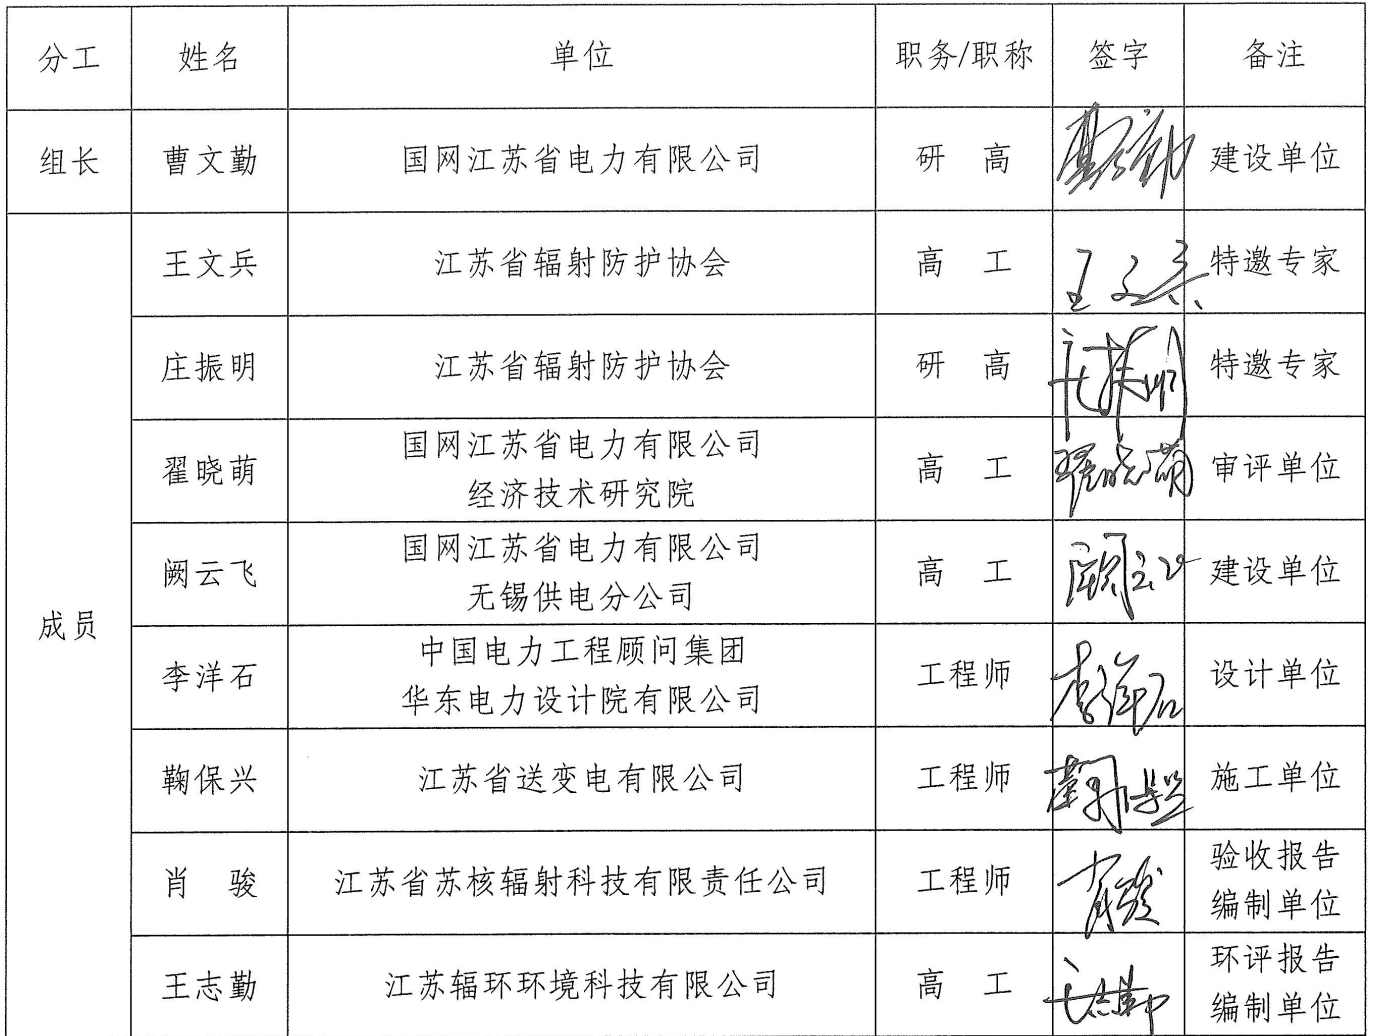 分工 姓名 单位 职务/职称 签字 备注
组长 曹文勤 国网江苏省电力有限公司 研 高 曹文勤 建设单位
成员
王文兵 江苏省辐射防护协会 高 工 王文兵 特邀专家
庄振明 江苏省辐射防护协会 研 高 庄振明 特邀专家
翟晓萌 国网江苏省电力有限公司 高 工 翟晓萌 审评单位
经济技术研究院
阙云飞 国网江苏省电力有限公司 高 工 阙云飞 建设单位
无锡供电分公司
李洋石 中国电力工程顾问集团 工程师 李洋石 设计单位
华东电力设计院有限公司
鞠保兴 江苏省送变电有限公司 工程师 鞠保兴 施工单位
肖 骏 江苏省苏核辐射科技有限责任公司 工程师 肖骏 验收报告
编制单位
王志勤 江苏辐环环境科技有限公司 高 工 王志勤 环评报告
编制单位